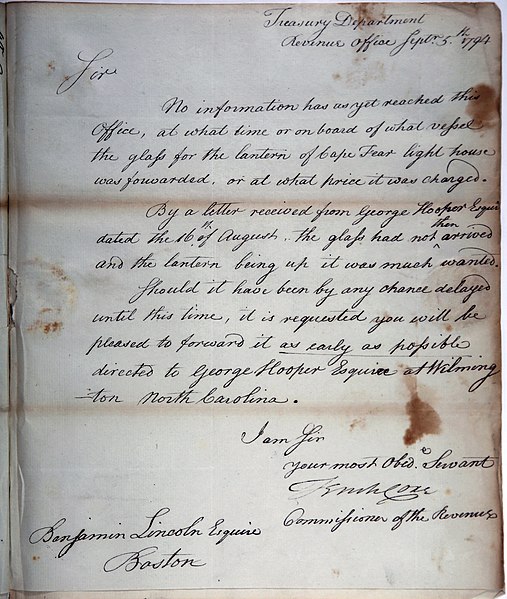 Treasury Department
Revenue Office Septr. 5th. 1794
Sir
No information has as yet reached this
Office, at what time or on board of what vessel
the glass for the lantern of Cape Fear light house
was forwarded, or at what price it was charged.
By a letter received from George Hooper Esquire
dated the 16th of August. the glass had not then arrived
and the lantern being up it was much wanted.
Should it have been by any chance delayed
until this time, it is requested you will be
pleased to forward it as early as possible
directed to George Hooper Esquire at Wilming
-ton North Carolina.
I am Sir
your most Obed.e Servant
Tench Coxe
Commissioner of the Revenue
Benjamin Lincoln Esquire
Boston